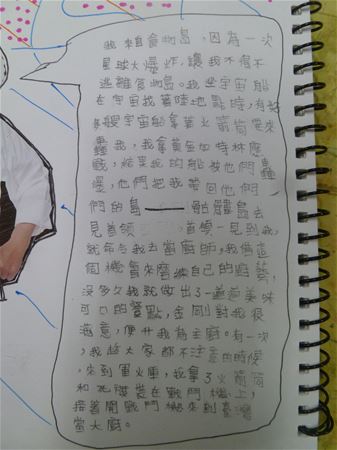 我來自食物島，因為一次
星球大爆炸，讓我不得不
逃離食物島。我坐宇宙船
在宇宙找著陸地點時，有好
幾艘宇宙船拿著火箭筒要來
轟我，我拿黃金加特林應
戰，結果我的船被他們轟
壞，他們把我帶回他們
們的島——骷髏島去
見首領 首領一見到我，
就命令我去當廚師，我借這
個機會來磨練自己的廚藝，
沒多久我就做出了一道道美味
可口的餐點，金剛對我很
滿意，便升我為主廚。有一次
，我趁大家都不注意的時候
，來到軍火庫，我拿了火箭筒
和 裝在戰鬥機上，
接著開戰鬥機來到臺灣
當大廚。